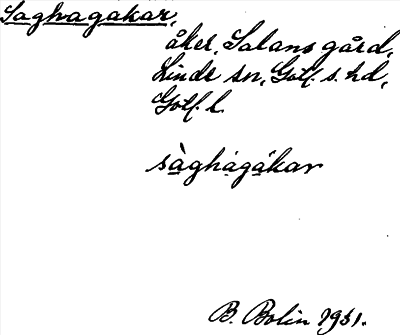 Saghagakar,
åker, Salans gård,
Linde sn, Gotl. s. hd,
Gotl. l.
sàghágàkar
B. Bolin 1931.